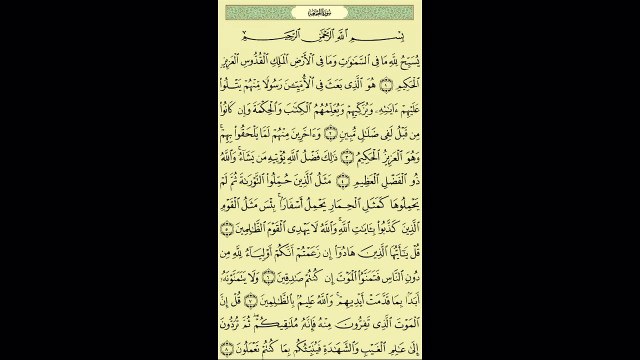 سورة الجمعة
بِسْمِ ٱللَّهِ ٱلرَّحْمَٰنِ ٱلرَّحِيمِ
يُسَبِّحُ لِلَّهِ مَا فِى ٱلسَّمَٰوَٰتِ وَمَا فِى ٱلْأَرْضِ ٱلْمَلِكِ ٱلْقُدُّوسِ ٱلْعَزِيزِ
ٱلْحَكِيمِ ١ هُوَ ٱلَّذِى بَعَثَ فِى ٱلْأُمِّيِّۦنَ رَسُولًا مِّنْهُمْ يَتْلُوا۟
عَلَيْهِمْ ءَايَٰتِهِۦ وَيُزَكِّيهِمْ وَيُعَلِّمُهُمُ ٱلْكِتَٰبَ وَٱلْحِكْمَةَ وَإِن كَانُوا۟
مِن قَبْلُ لَفِى ضَلَٰلٍ مُّبِينٍ ٢ وَءَاخَرِينَ مِنْهُمْ لَمَّا يَلْحَقُوا۟ بِهِمْ ۚ
وَهُوَ ٱلْعَزِيزُ ٱلْحَكِيمُ ٣ ذَٰلِكَ فَضْلُ ٱللَّهِ يُؤْتِيهِ مَن يَشَآءُ ۚ وَٱللَّهُ
ذُو ٱلْفَضْلِ ٱلْعَظِيمِ ٤ مَثَلُ ٱلَّذِينَ حُمِّلُوا۟ ٱلتَّوْرَىٰةَ ثُمَّ لَمْ
يَحْمِلُوهَا كَمَثَلِ ٱلْحِمَارِ يَحْمِلُ أَسْفَارًۢا ۚ بِئْسَ مَثَلُ ٱلْقَوْمِ
ٱلَّذِينَ كَذَّبُوا۟ بِـَٔايَٰتِ ٱللَّهِ ۚ وَٱللَّهُ لَا يَهْدِى ٱلْقَوْمَ ٱلظَّٰلِمِينَ ٥
قُلْ يَٰٓأَيُّهَا ٱلَّذِينَ هَادُوٓا۟ إِن زَعَمْتُمْ أَنَّكُمْ أَوْلِيَآءُ لِلَّهِ مِن
دُونِ ٱلنَّاسِ فَتَمَنَّوُا۟ ٱلْمَوْتَ إِن كُنتُمْ صَٰدِقِينَ ٦ وَلَا يَتَمَنَّوْنَهُۥٓ
أَبَدًۢا بِمَا قَدَّمَتْ أَيْدِيهِمْ ۚ وَٱللَّهُ عَلِيمٌۢ بِٱلظَّٰلِمِينَ ٧ قُلْ إِنَّ
ٱلْمَوْتَ ٱلَّذِى تَفِرُّونَ مِنْهُ فَإِنَّهُۥ مُلَٰقِيكُمْ ۖ ثُمَّ تُرَدُّونَ
إِلَىٰ عَٰلِمِ ٱلْغَيْبِ وَٱلشَّهَٰدَةِ فَيُنَبِّئُكُم بِمَا كُنتُمْ تَعْمَلُونَ ٨